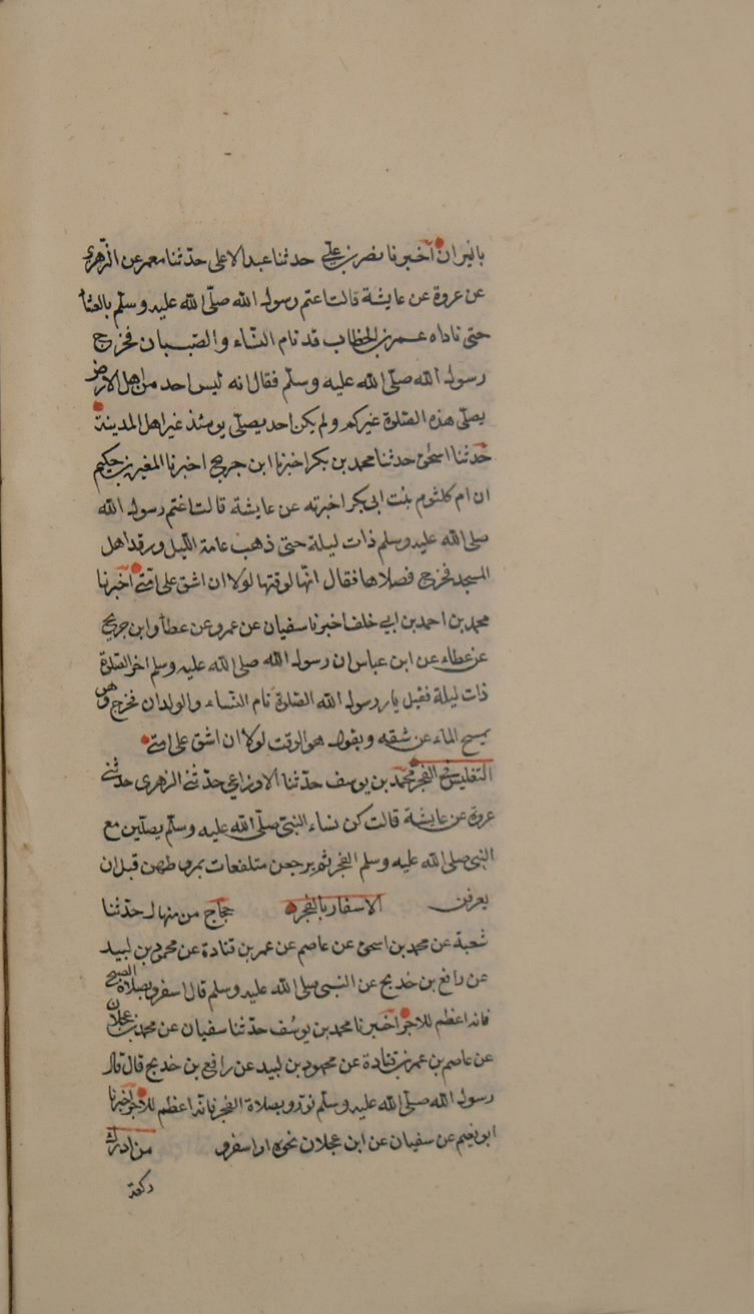 بالنيران اخبرنا نصر بن علي حدثنا عبد الاعلى حدثنا معمر عن الزهري
عن عروة عن عايشة قالت اعتم رسول الله صلى الله عليه وسلم بالعشا
حتى ناداه عمر بن الخطاب قد نام النساء والصبيان فخرج
رسول الله صلى الله عليه وسلم فقال انه ليس احد من اهل الارض
يصلى هذه الصلوة غيركم ولم يكن احد يصلى يومئذ غير اهل المدينة
حدثنا اسحق حدثنا محمد بن بكر اخبرنا ابن جريج اخبرنا المغيرة بن حكيم
ان ام كلثوم بنت ابى بكر اخبرته عن عايشة قالت اعتم رسول الله
صلى الله عليه وسلم ذات ليلة حتى ذهب عامة الليل ورقد اهل
المسجد فخرج فصلاها فقال انها لوقتها لولا ان اشق على امتى اخبرنا
محمد بن احمد بن ابي خلف اخبرنا سفيان عن عمرو عن عطا وابن جريج
عن عطاء عن ابن عباس ان رسول الله صلى الله عليه وسلم اخر الصلوة
ذات ليلة فقيل يا رسول الله الصلوة نام النساء والولدان فخرج وهو
يمسح الماء عن شقه ويقول هو الوقت لولا ان اشق على امتى
التغليس فى الفجر محمد بن يوسف حدثنا الاوزاعي حدثنى الزهرى حدثنى
عروة عن عايشة قالت كن نساء النبى صلى الله عليه وسلم يصلين مع
النبى صلى الله عليه وسلم الفجر ثم يرجعن متلفعات بمروطهن قبل ان
يعرفن الاسفار بالفجر حجاج من منهال حدثنا
شعبة عن محمد بن اسحق عن عاصم عن عمر بن قتادة عن محمود بن لبيد
عن رافع بن خديج عن النبى صلى الله عليه وسلم قال اسفروا بصلاة الصبح
فانه اعظم للاجر اخبرنا محمد بن يوسف حدثنا سفيان عن محمد بن عجلان
عن عاصم بن عمر بن قتادة عن محمود بن لبيد عن رافع بن خديج قال قال
رسول الله صلى الله عليه وسلم نوروا بصلاة الفجر فانه اعظم للاجر اخبرنا
ابو نعيم عن سفيان عن ابن عجلان نحوه او اسفروا من ادرك
ركعة